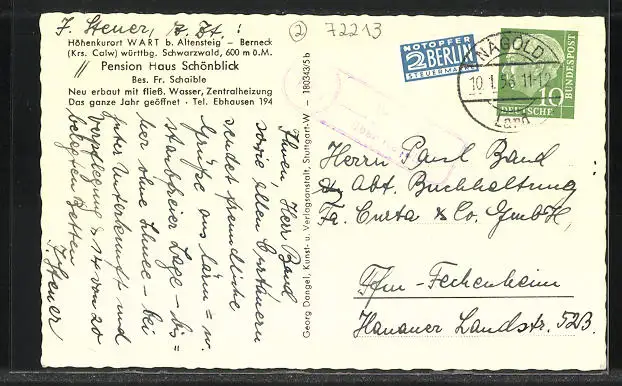 J. Steuer, z. Zt. :
Höhenkurort WART b. Altensteig - Berneck
(Krs. Calw) württbg. Schwarzwald, 600 m ü.M.
// Pension Haus Schönblick
Bes. Fr. Schaible
Neu erbaut mit fließ. Wasser, Zentralheizung
Das ganze Jahr geöffnet · Tel. Ebhausen 194
Ihnen, Herr Band
sowie allen Curtanern
sendet freundliche
Grüße aus lärm= u.
staubfreier Lage - bis=
her ohne Schnee - bei
guter Unterkunft und
Verpflegung & 14 von 20
belegten Betten
J. Steuer
Georg Dangel, Kunst- u. Verlagsanstalt, Stuttgart-W 180343/5b
2
72213
NOTOPFER
2 BERLIN
STEUERMARKE
NAGOLD
10.1.56 11-12
Land
10
DEUTSCHE
BUNDESPOST
Herrn Paul Band
Abt. Buchhaltung
Fa. Curta & Co. GmbH,
Ffm-Fechenheim
Hanauer Landstr. 523.